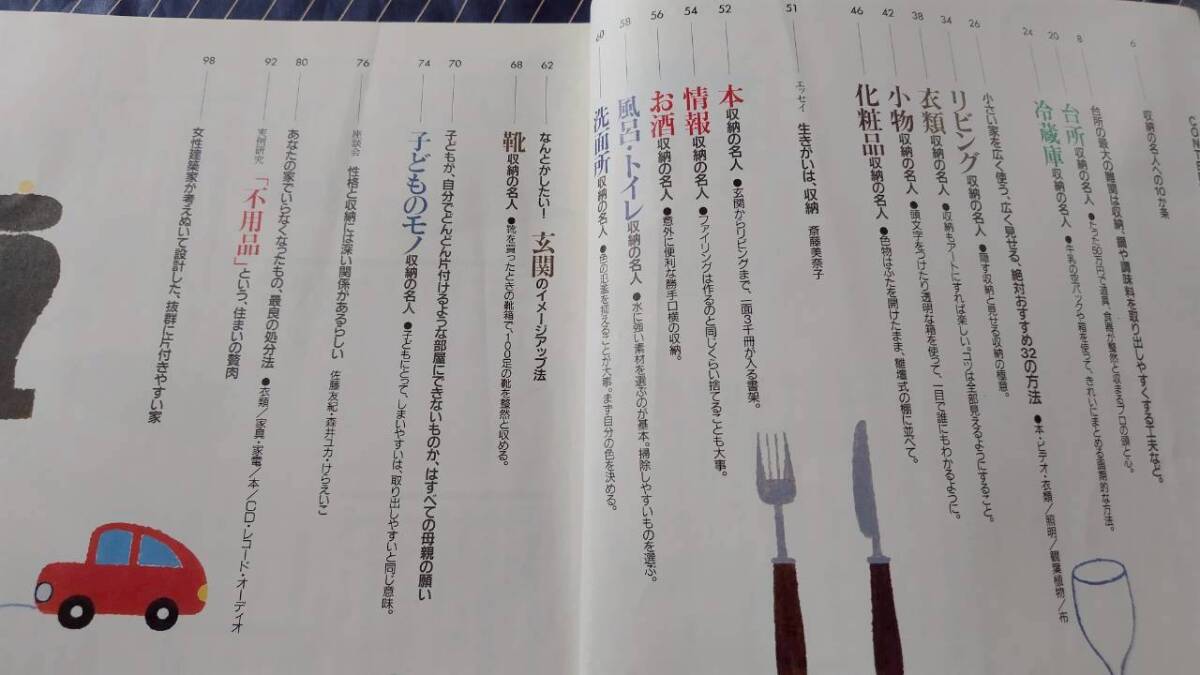 CONTE
6 収納の名人への10か条
8 台所の最大の難関は収納、鍋や調味料を取り出しやすくする工夫など。
台所 収納の名人 ●たった50万円で道具、食器が整然と収まるプロの頭と心。
20 冷蔵庫 収納の名人 ●牛乳の空パックや箱を使って、きれいにまとめる画期的な方法。
24 小さい家を広く使う、広く見せる、絶対おすすめ32の方法 ●本・ビデオ・衣類/照明/観葉植物/布
26 リビング 収納の名人 ●隠す収納と見せる収納の極意。
34 衣類 収納の名人 ●収納もアートにすれば楽しい。コツは全部見えるようにすること。
38 小物 収納の名人 ●頭文字をつけたり透明な箱を使って、一目で誰にもわかるように。
42
46 化粧品 収納の名人 ●色物はふたを開けたまま、雛壇式の棚に並べて。
51 エッセイ 生きがいは、収納 斎藤美奈子
52 本 収納の名人 ●玄関からリビングまで、一面3千冊が入る書架。
54 情報 収納の名人 ●ファイリングは作るのと同じくらい捨てることも大事。
56 お酒 収納の名人 ●意外に便利な勝手口横の収納。
58 風呂・トイレ 収納の名人 ●水に強い素材を選ぶのが基本。掃除しやすいものを選ぶ。
60 洗面所 収納の名人 ●色の氾濫を抑えることが大事。まず自分の色を決める。
62 なんとかしたい! 玄関のイメージアップ法
68 靴 収納の名人 ●靴を買ったときの靴箱で、100足の靴を整然と収める。
70 子どもが、自分でどんどん片付けるような部屋にできないものか、はすべての母親の願い
74 子どものモノ 収納の名人 ●子どもにとって、しまいやすいは、取り出しやすいと同じ意味。
76 座談会 性格と収納には深い関係があるらしい 佐藤友紀・森井ユカ・けらえいこ
80 あなたの家でいらなくなったもの、最良の処分法 ●衣類/家具・家電/本/CD・レコード・オーディオ
92 実例研究 「不用品」という、住まいの贅肉
98 女性建築家が考えぬいて設計した、抜群に片付きやすい家